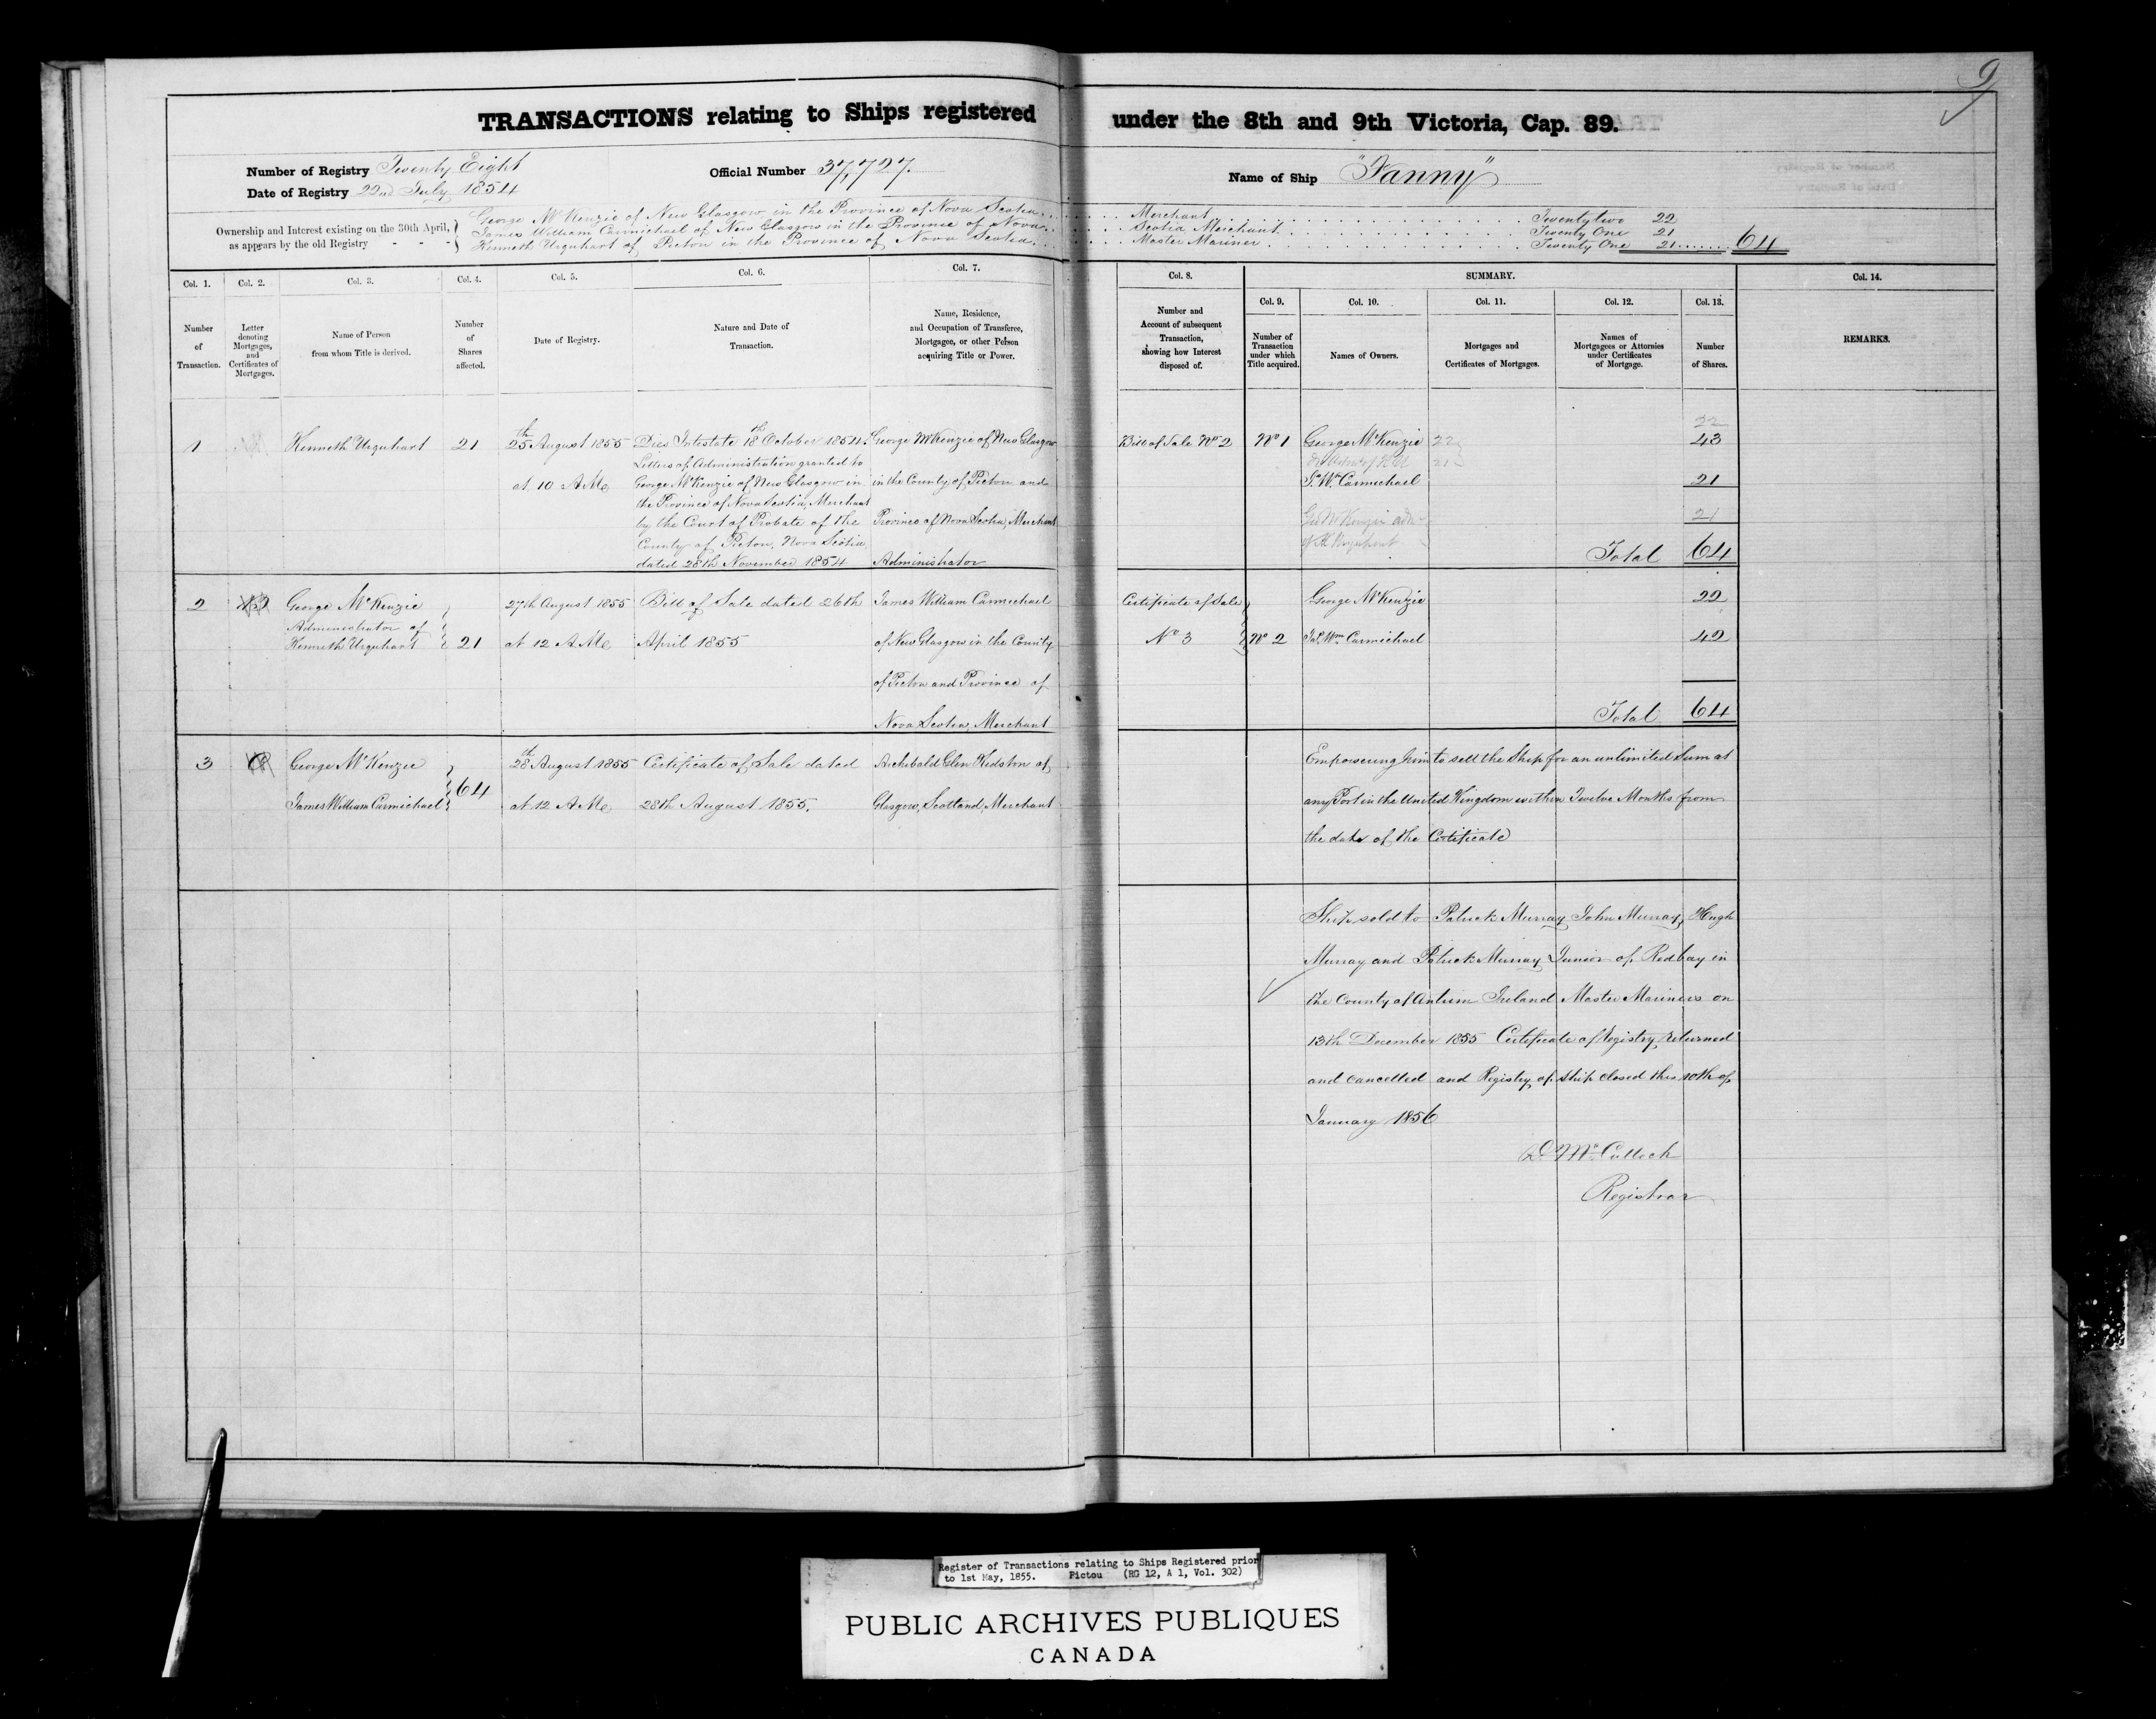 9
TRANSACTIONS relating to Ships registered under the 8th and 9th Victoria, Cap. 89.
Number of Registry Twenty Eight
Official Number 37,727.
Name of Ship "Fanny"
Date of Registry 22nd July 1854
Ownership and Interest existing on the 30th April, as appears by the old Registry - - -
George McKenzie of New Glasgow in the Province of Nova Scotia . . . Merchant . . . Twenty two 22
James William Carmichael of New Glasgow in the Province of Nova Scotia Merchant . . . Twenty One 21
Kenneth Urquhart of Pictou in the Province of Nova Scotia . . . Master Mariner . . . Twenty One 21 . . . 64
Col. 1.
Number
of
Transaction.
Col. 2.
Letter
denoting
Mortgages,
and
Certificates of
Mortgages.
Col. 3.
Name of Person
from whom Title is derived.
Col. 4.
Number
of
Shares
affected.
Col. 5.
Date of Registry.
Col. 6.
Nature and Date of
Transaction.
Col. 7.
Name, Residence,
and Occupation of Transferee,
Mortgagee, or other Person
acquiring Title or Power.
Col. 8.
Number and
Account of subsequent
Transaction,
showing how Interest
disposed of.
SUMMARY.
Col. 9.
Number of
Transaction
under which
Title acquired.
Col. 10.
Names of Owners.
Col. 11.
Mortgages and
Certificates of Mortgages.
Col. 12.
Names of
Mortgagees or Attornies
under Certificates
of Mortgage.
Col. 13.
Number
of Shares.
Col. 14.
REMARKS.
1
Kenneth Urquhart
21
25th August 1855
at 10 A.M.
Dies Intestate 18th October 1854.
Letters of Administration granted to
George McKenzie of New Glasgow in
the Province of Nova Scotia, Merchant
by the Court of Probate of the
County of Pictou, Nova Scotia
dated 28th November 1854
George McKenzie of New Glasgow
in the County of Pictou and
Province of Nova Scotia, Merchant
Administrator
Bill of Sale No 2
No 1
George McKenzie 22
21
J. W. Carmichael
Geo McKenzie adm
of K Urquhart
22
43
21
21
Total 64
2
George McKenzie
Administrator of
Kenneth Urquhart
21
27th August 1855
at 12 A.M.
Bill of Sale dated 26th
April 1855
James William Carmichael
of New Glasgow in the County
of Pictou and Province of
Nova Scotia, Merchant
Certificate of Sale
No 3
No 2
George McKenzie
Jas. Wm Carmichael
22
42
Total 64
3
George McKenzie
James William Carmichael
64
28th August 1855
at 12 A.M.
Certificate of Sale dated
28th August 1855.
Archibald Glen Kidston of
Glasgow, Scotland, Merchant
Empowering him to sell the Ship for an unlimited Sum at
any Port in the United Kingdom within Twelve Months from
the date of the Certificate
Ship sold to Patrick Murray, John Murray, Hugh
Murray and Patrick Murray Junior of Redbay in
the County of Antrim Ireland Master Mariners on
13th December 1855 Certificate of Registry returned
and cancelled and Registry of Ship closed this 10th of
January 1856
D. McCulloch
Registrar
Register of Transactions relating to Ships Registered prior
to 1st May, 1855. Pictou (RG 12, A 1, Vol. 302)
PUBLIC ARCHIVES PUBLIQUES
CANADA